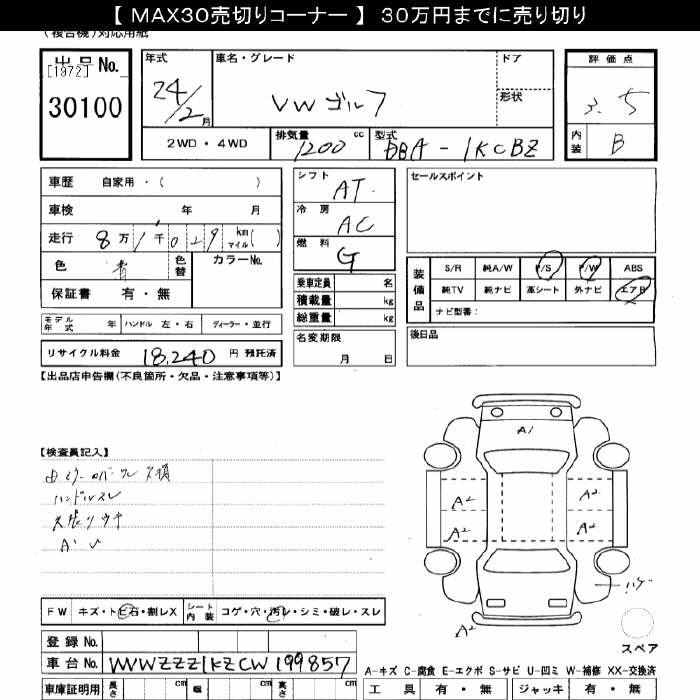 【 MAX30売切りコーナー 】 30万円までに売り切り
(複合機)対応用紙
出品 No.
[1972]
30100
年式
24/2 月
車名・グレード
VW ゴルフ
ドア
形状
評価点
3.5
内装
B
2WD・4WD
排気量 1200 cc
型式 DBA-1KCBZ
車歴 自家用・( )
車検 年 月
走行 8万1千029 km マイル( )
色 青
色替
カラーNo.
保証書 有・無
シフト AT
冷房 AC
燃料 G
乗車定員 名
積載量 kg
総重量 kg
名変期限
月 日
セールスポイント
装備品
S/R 純A/W P/S P/W ABS
純TV 純ナビ 革シート 外ナビ エアB
ナビ型番:
後日品
モデル年式 年 ハンドル 左・右 ディーラー・並行
リサイクル料金 18,240 円 預託済
【出品店申告欄(不良箇所・欠品・注意事項等)】
【検査員記入】
ハンドルスレ
天張りウキ
A1
A2 A2
A2 A2
A2
ハゲ
スペア
FW キズ・トビ石・割レX シート内装 コゲ・穴・汚レ・シミ・破レ・スレ
登録 No.
車台 No. WVWZZZ1KZCW199857
車庫証明用 長さ cm 幅 cm 高さ cm
A-キズ C-腐食 E-エクボ S-サビ U-凹ミ W-補修 XX-交換済
工具 有・無 ジャッキ 有・無